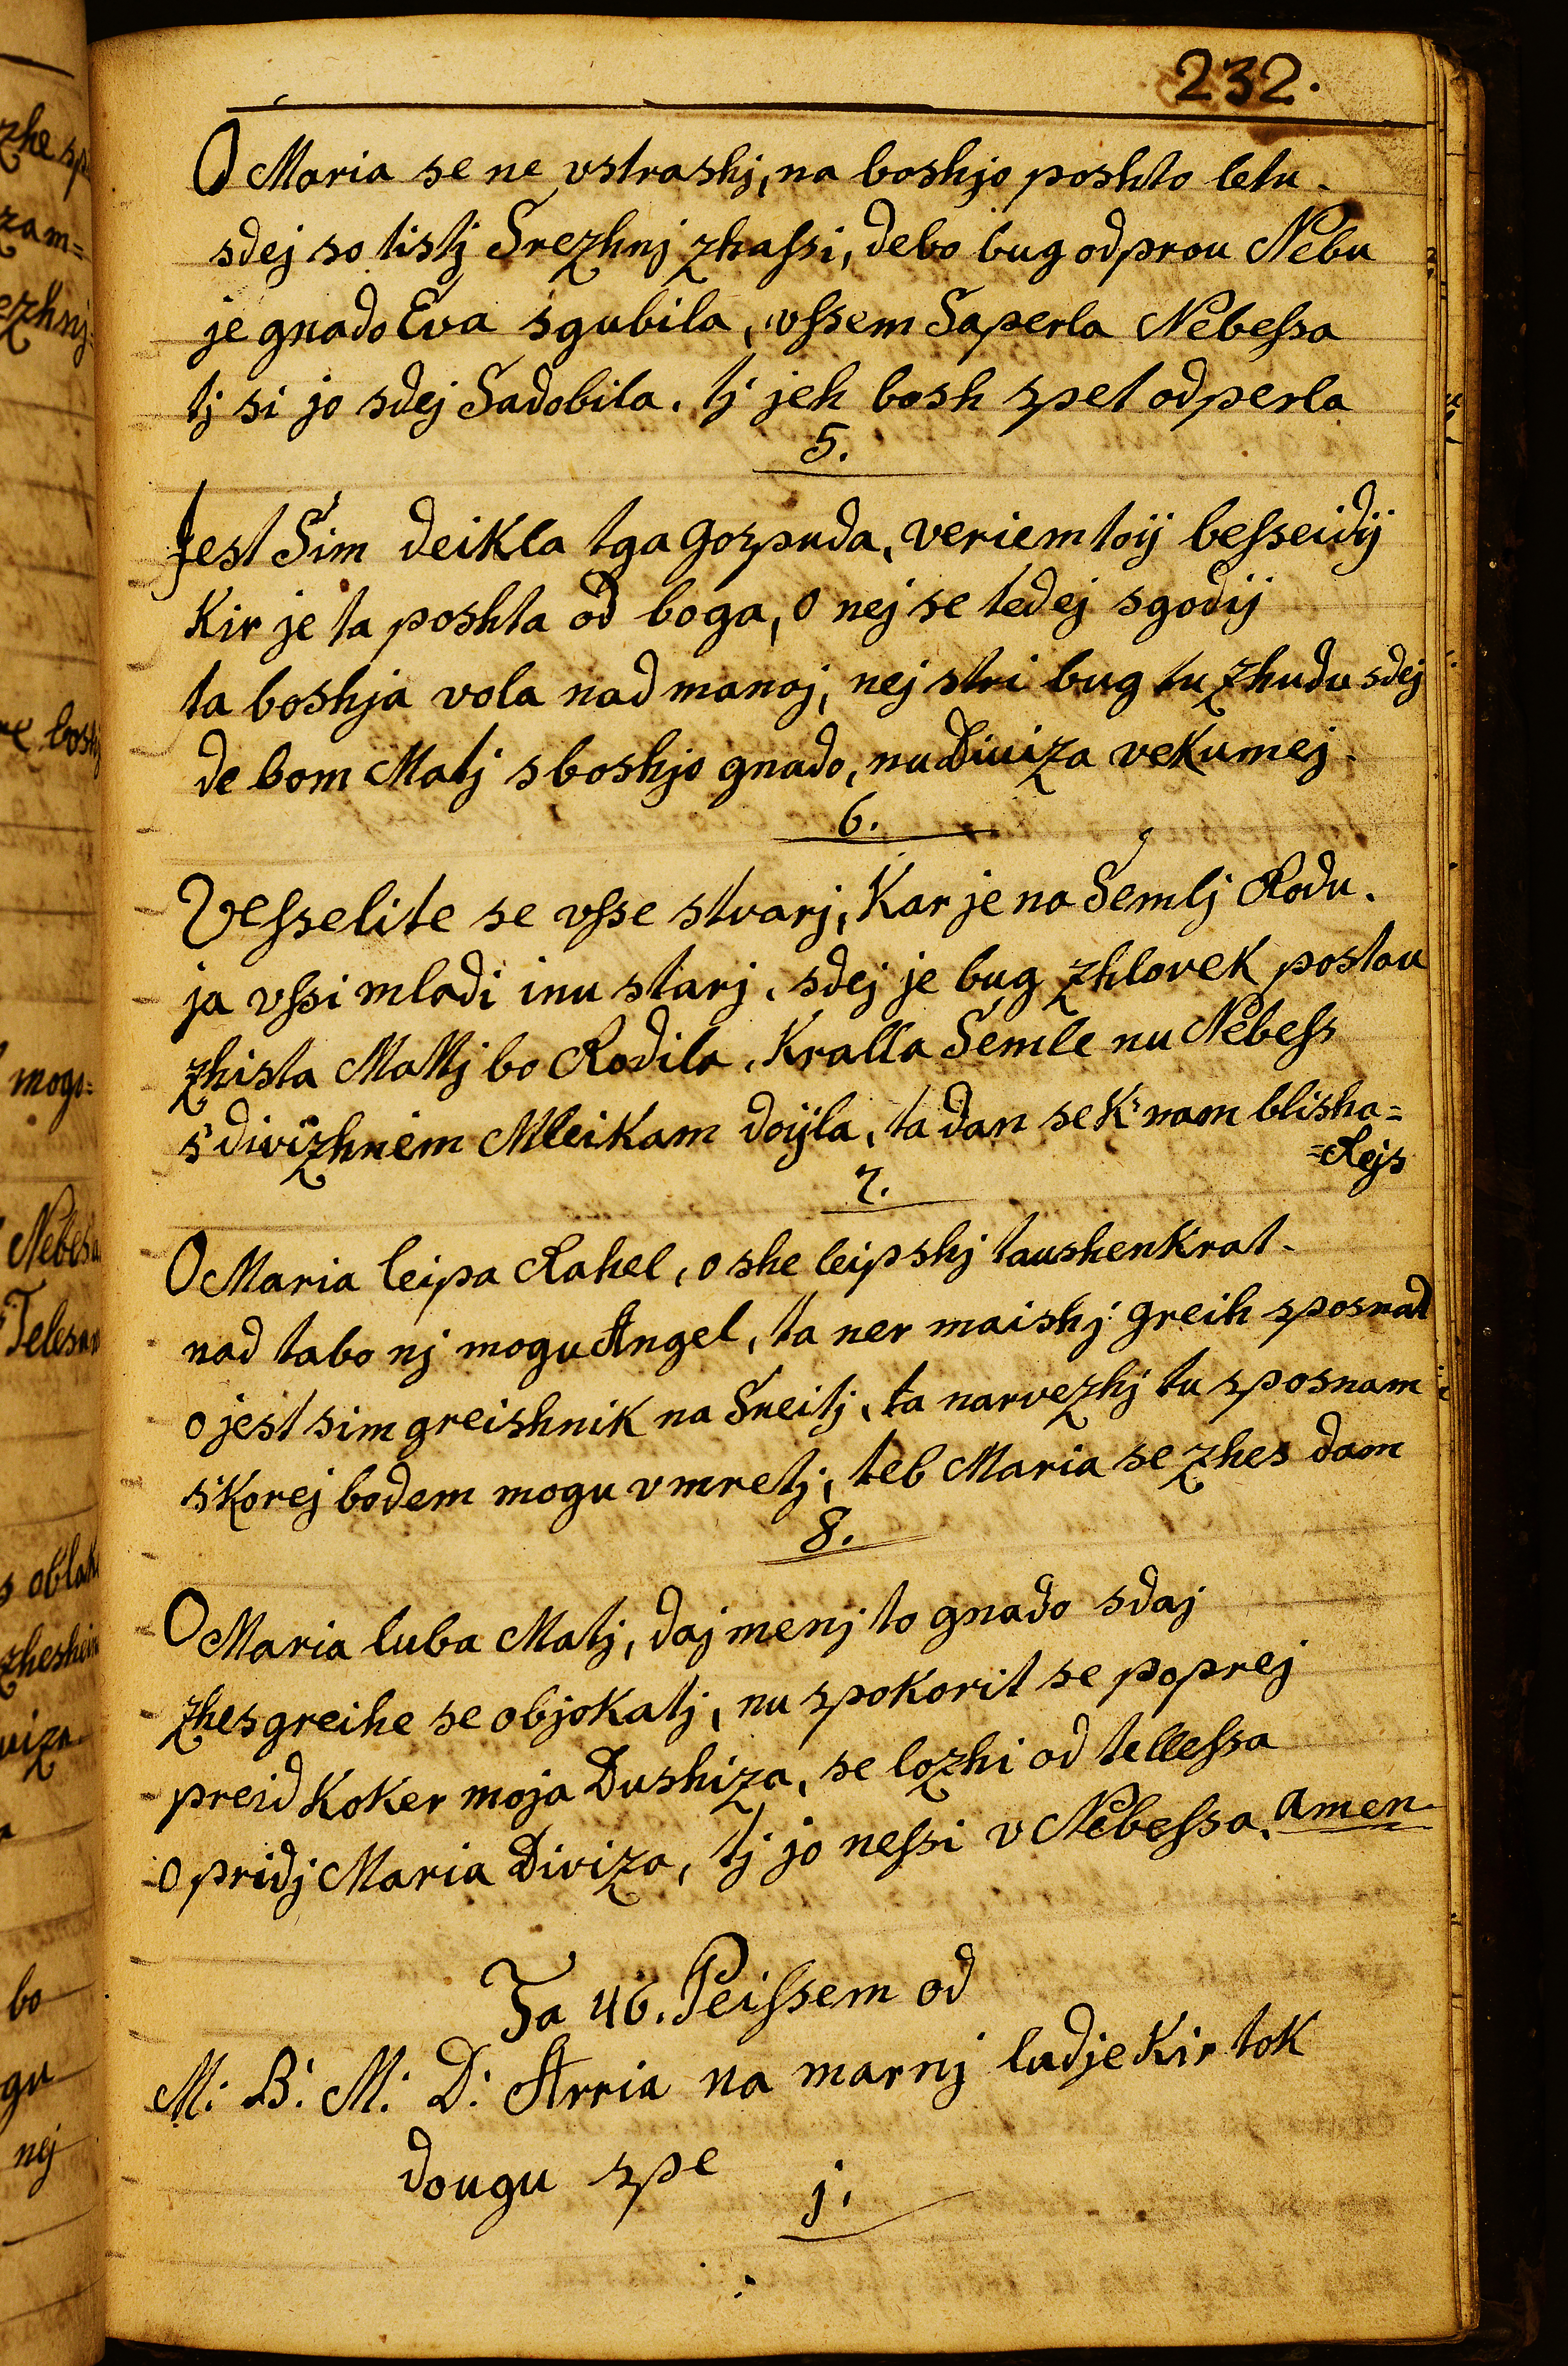 232.
O Maria se ne vstrashj, na boshjo poshto letu.
sdej so tistj Srezhnj zhaſsi, debo bug odprou Nebu
je gnado Eva sgubila, vſsem Saperla Nebeſsa
tj si jo sdej Sadobila. tj jeh bosh spet odperla
5.
Jest Sim deikla tga gospuda, veriem toÿ beſseidÿ
Kir je ta poshta od boga, o nej se tedej sgodÿ
ta boshja vola nad manoj, nej stri bug tu zhudu sdej
de bom Matj s boshjo gnado, nu Diviza vekumej.
6.
Veſselite se vſse stvarj, Kar je na Semlj Rodu.
ja vſsi mladi inu starj, sdej je bug zhlovek postau
zhista Mattj bo Rodila, Kralla Semle nu Nebeſs
s' divizhnem Mleikam doÿla, ta dan se K' nam blisha=
=Rejs
7.
O Maria leipa Rahel, o she leipshj taushenkrat.
nad tabo nj mogu Angel, ta ner maishj greih sposnat
o jest sim greishnik na Sveitj, ta narvezhj tu sposnam
s'korej bodem mogu vmretj, teb Maria se zhes dam
8.
O Maria luba Matj, daj menj to gnado sdaj
zhes greihe se objokatj, nu spokorit se poprej
preid Koker moja Dushiza, se lozhi od telleſsa
O pridj Maria Diviza, tj jo neſsi v Nebeſsa. amen
Ta 46. Peiſsem od
M: B: M: D: Arria na marnj ludje Kir tok
dougu spe
j.